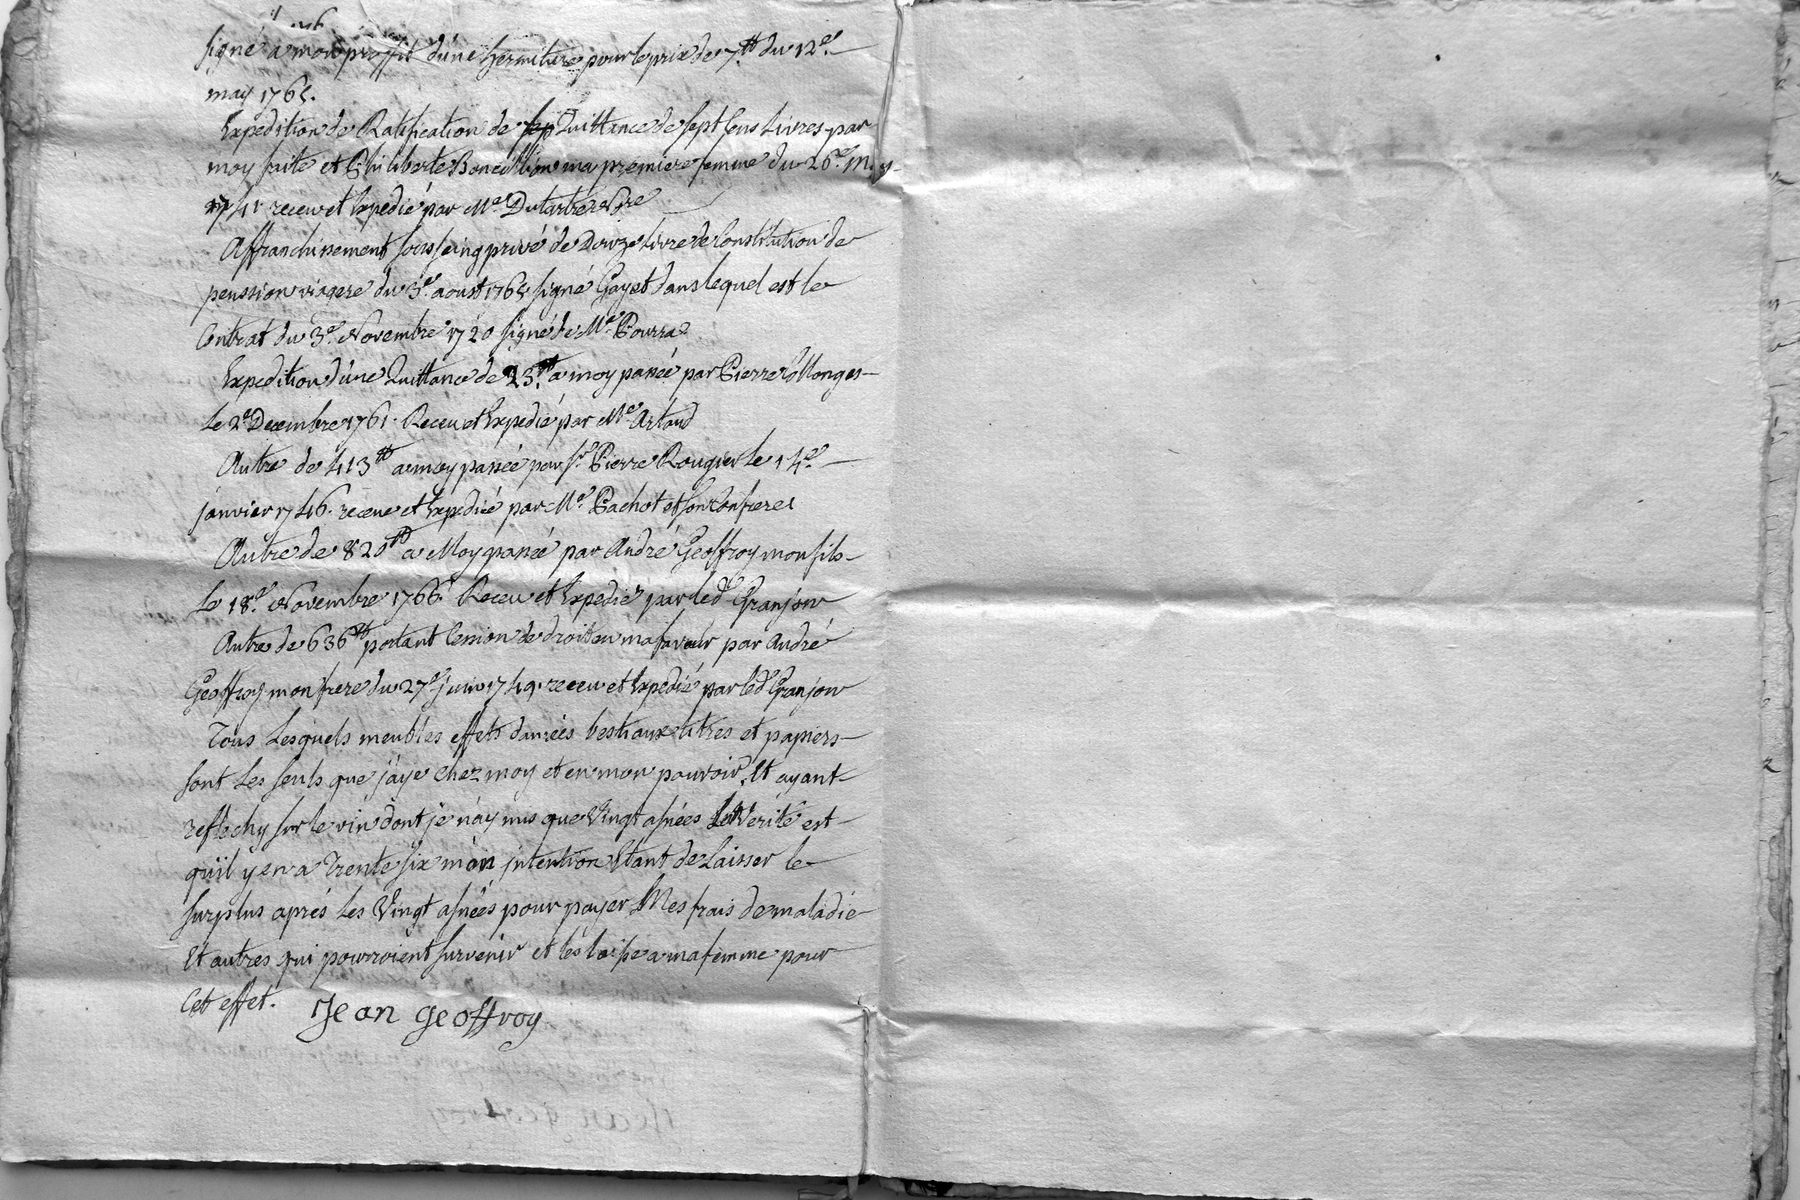 signé a mon proffit d'une fermiture pour le prix de 7.tt du 12.e
may 1765.
Expedition de Ratification de Quittance de sept Cens Livres par
moy faite et Philiberte ma premiere femme du 26.e may
1741 receu et Expedié par Me. Dutartre Nre
Affranchissement sous seing privé de Douze Livre de Constitution de
pension viagere du 3.e aoust 1765 signé Gayet dans lequel est le
Contrat du 3.e Novembre 1720 signé de Me. Pourra
Expedition d'une Quittance de 23.tt a moy passée par Pierre Collonges
Le 2.e Decembre 1761. Receu et Expedié par Me. Artaud
Autre de 413tt a moy passée par Sr. Pierre Rougier le 14.e
janvier 1746. receue et Expedié par Me. Pachot et son Confrere
Autre de 820tt a Moy passée par André Geoffroy mon fils
Le 18.e Novembre 1766. Receu et Expedié par led. Granjon
Autre de 636tt portant Cession de droit en ma faveur par André
Geoffroy mon frere du 27.e Juin 1749. receu et Expedié par led. Granjon
Tous Lesquels meubles effets danrées bestiaux titres et papiers
sont Les seuls que j'aye chez moy et en mon pouvoir, Et ayant
reflechy sur le vin dont je n'ay mis que Vingt asnées La Verité est
qu'il y en a Trente six mon jntention Etant de Laisser le
surplus aprés Les Vingt asnées pour payer Mes frais de maladie
Et autres qui pourroient survenir et les laisse a ma femme pour
Cet effet. Jean geoffroy